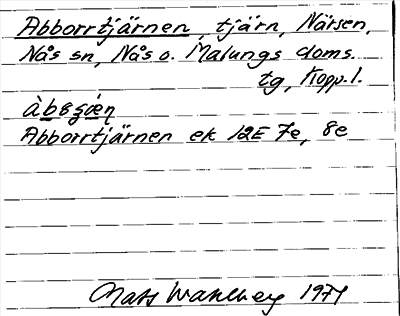 Abborrtjärnen, tjärn, Närsen,
Nås sn, Nås o. Malungs doms.
tg, Kopp. l.
Abborrtjärnen ek 12E 7e, 8e
Mats Wahlberg 1971